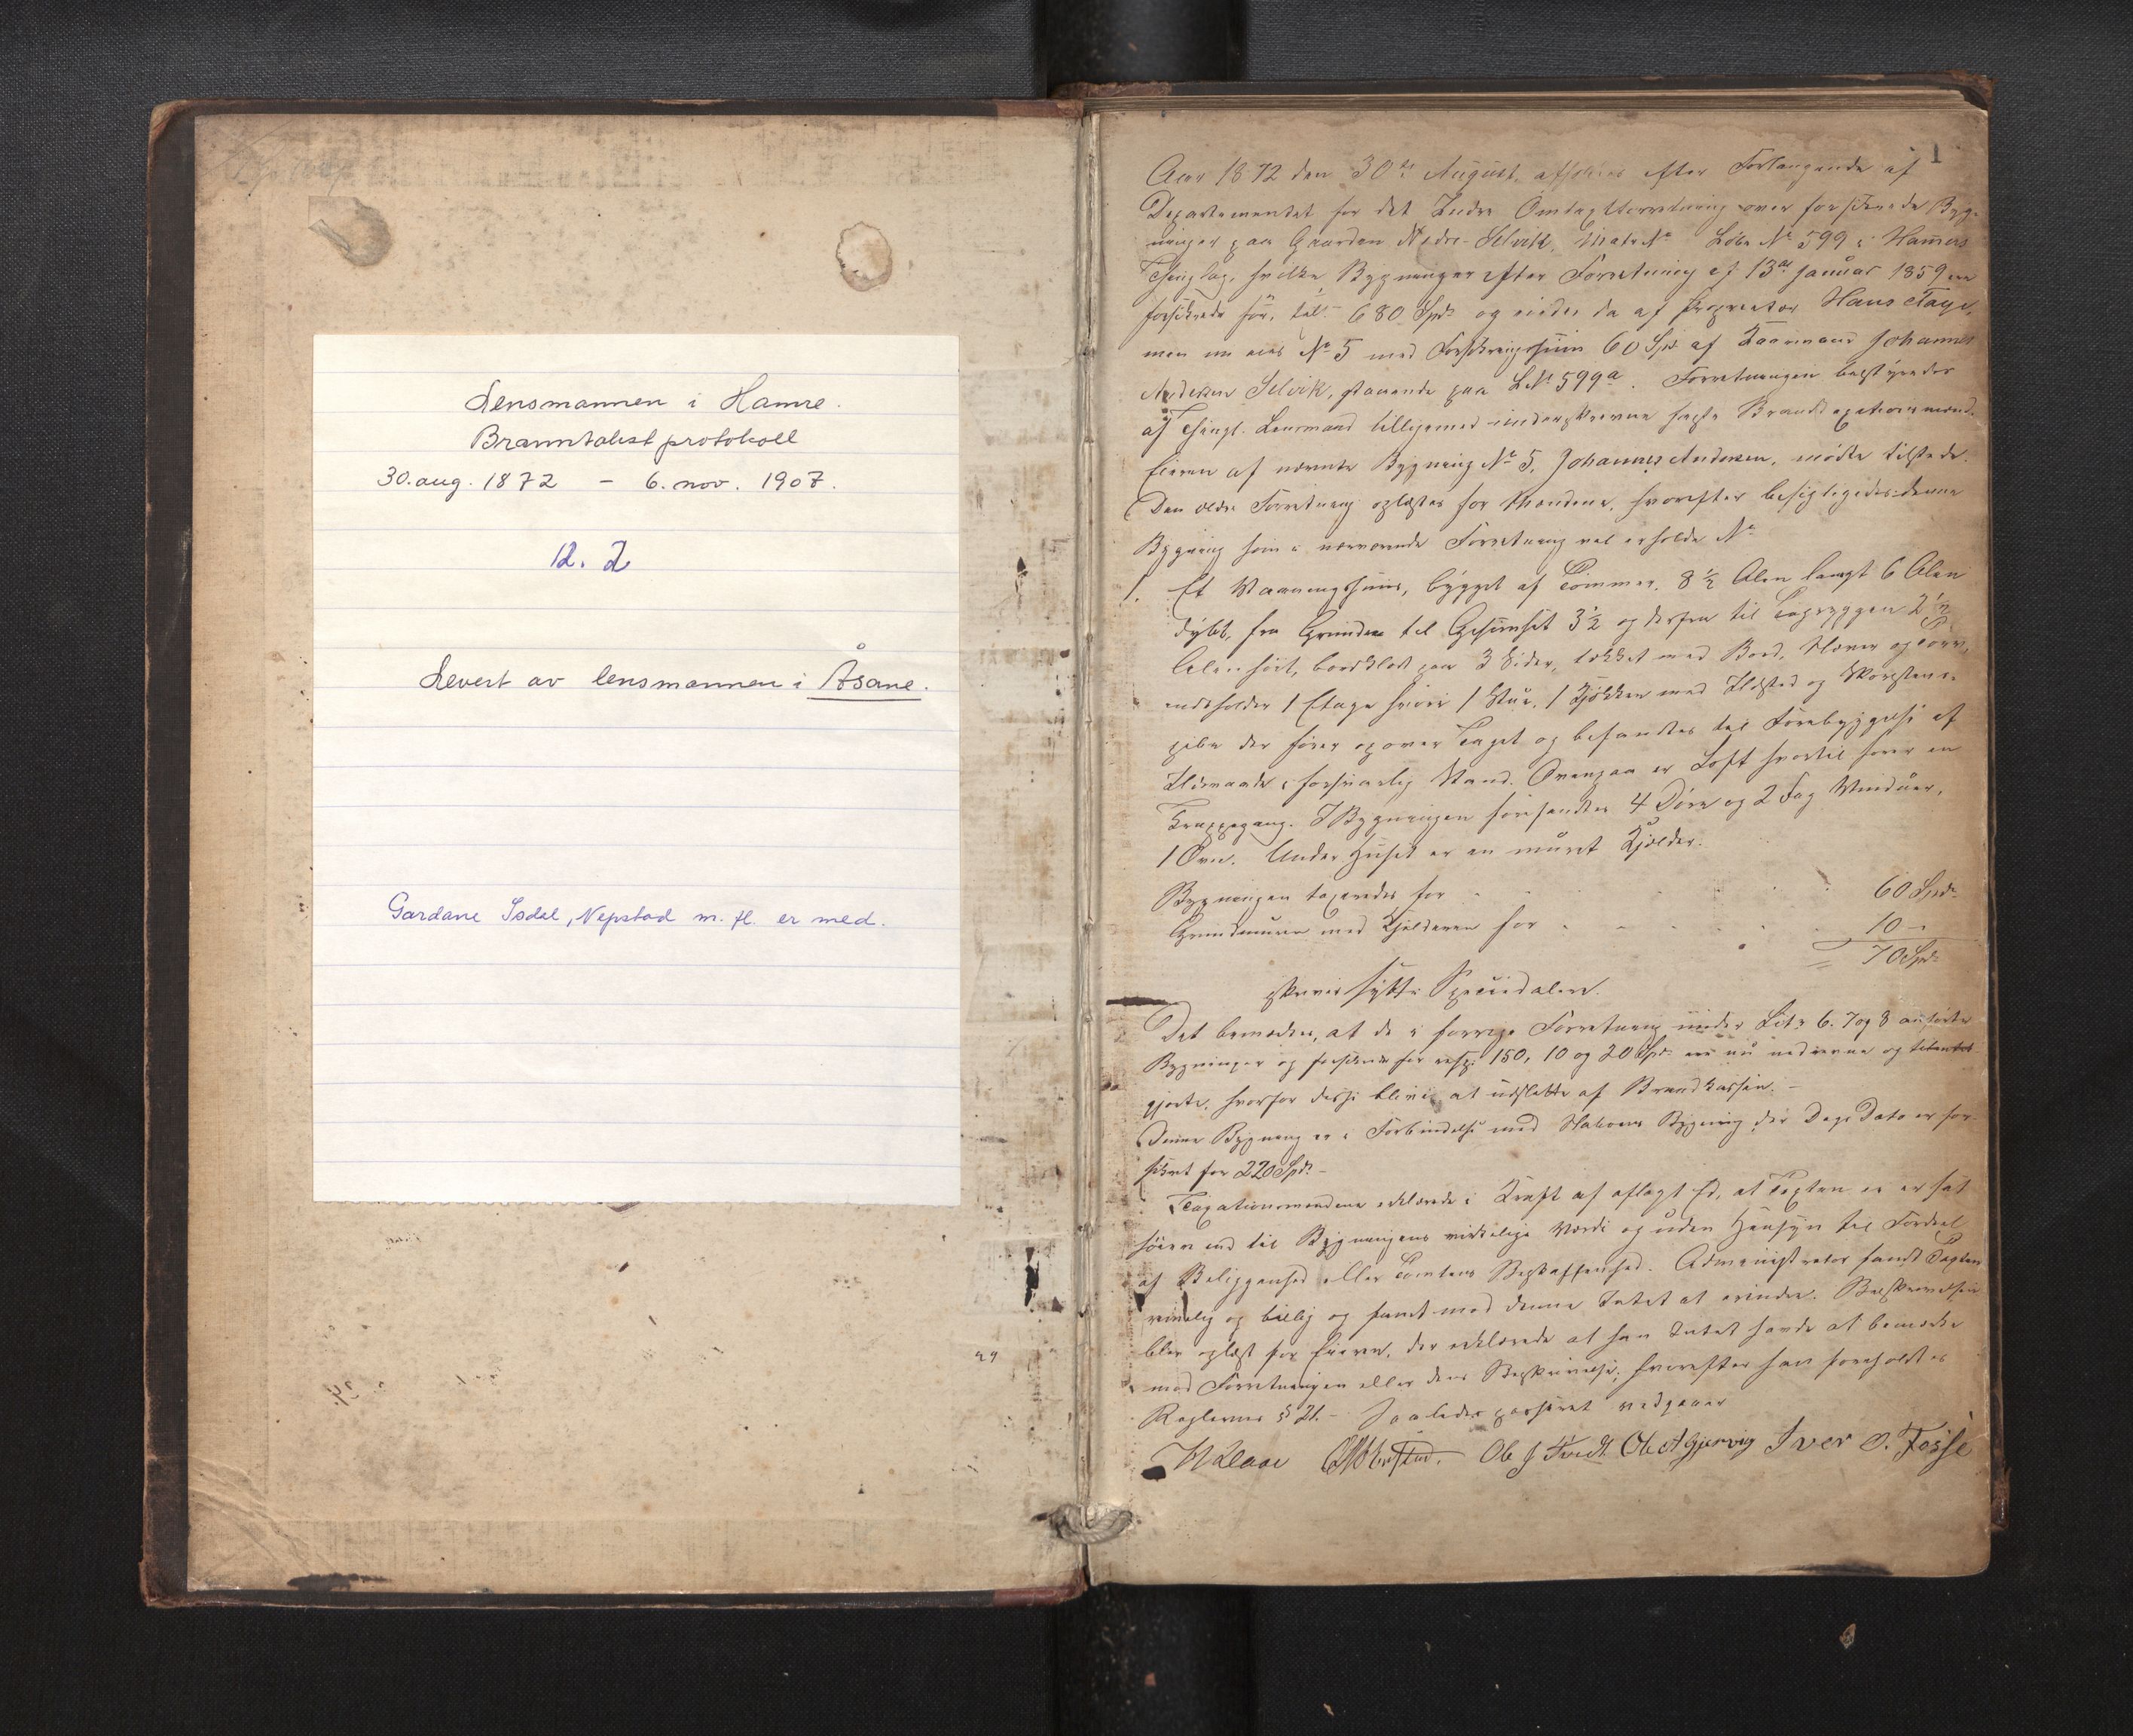 Lensmannen i Hamre.
Branntakstprotokoll
30. aug. 1872 - 6. nov. 1907.
12. 2
Levert av lensmannen i Åsane.
Gardane Isdal, Nepstad m. fl. er med.
1
Aar 1872 den 30te August, afholdtes efter Forlangende af
Departementet for det Indre Omtaxtforretning over forsikrede Byg-
ninger paa Gaarden Nedre-Selvik, Matr No Løbe No 599 i Hamers
Thinglag, hvilke Bygninger efter Forretning af 13de Januar 1859 ere
forsikrede for, tils. 680 Spd. og eiedes da af Proprietær Hans
men nu eies No 5 med Forsikringssum 60 Spd. af Johannes
Andersen Selvik, staaende paa LNo 599a. Forretningen bestyredes
af Thingl. Lensmand tilligemed underskrevne faste Brandtaxationsmænd.
Eieren af nævnte Bygning No 5, Johannes Andersen, mødte tilstede.
Den ældre Forretning oplæstes for Mændene, hvorefter besigtigedes denne
Bygning som i nærværende Forretning vil erholde No
1. Et Vaaningshuus, bygget af Tømmer, 8 1/2 Alen langt 6 Alen
dybt, fra Grunden til Gesimset 3 1/2 og derfra til Tagryggen 2 1/2
Alen høit, bordklædt paa 3 Sider, tækket med Bord, Næver og Torv,
indeholder 1 Etage hvori 1 Stue, 1 Kjøkken med Ildsted og Skorsteens-
pibe der fører op over Taget og befandtes til Forebyggelse af
Ildsvaade i forsvarlig Stand. Ovenpaa er Loft hvortil fører en
Trappegang. I Bygningen forefandtes 4 Døre og 2 Fag Vinduer,
1 Ovn. Under Huset er en muret Kjelder.
Bygningen taxeredes for 60 Spd.
Grundmuren med Kjelderen for 10 -
70 Spd.
skriver sytti Speciedaler.
Det bemærkes, at de i forrige Forretning under Litr 6. 7 og 8 anførte
Bygninger og forsikrede for resp. 150, 10 og 20 Spd. ere nu nedrevne og
gjorte, hvorfor disse blive at udslette af Brandkassen. -
Denne Bygning er i Forbindelse med Naboens Bygning der Dags Dato er for-
sikret for 220 Spd. -
Taxationsmændene erklærede i Kraft af aflagt Ed, at Taxten ei er sat
høiere end til Bygningens virkelige Værdi og uden Hensyn til Fordeel
af Beliggenhed eller Tomtens Beskaffenhed. Administrator fandt Taxten
rimelig og billig og fandt mod denne Intet at erindre. Beskrivelsen
blev oplæst for Eieren, der erklærede at han Intet havde at bemærke
mod Forretningen eller dens Beskrivelse, hvorefter han foreholdtes
Reglernes § 21. - Saaledes passeret vedgaaer
Ole J Tvedt Ole A Gjervig Iver O. Fosse